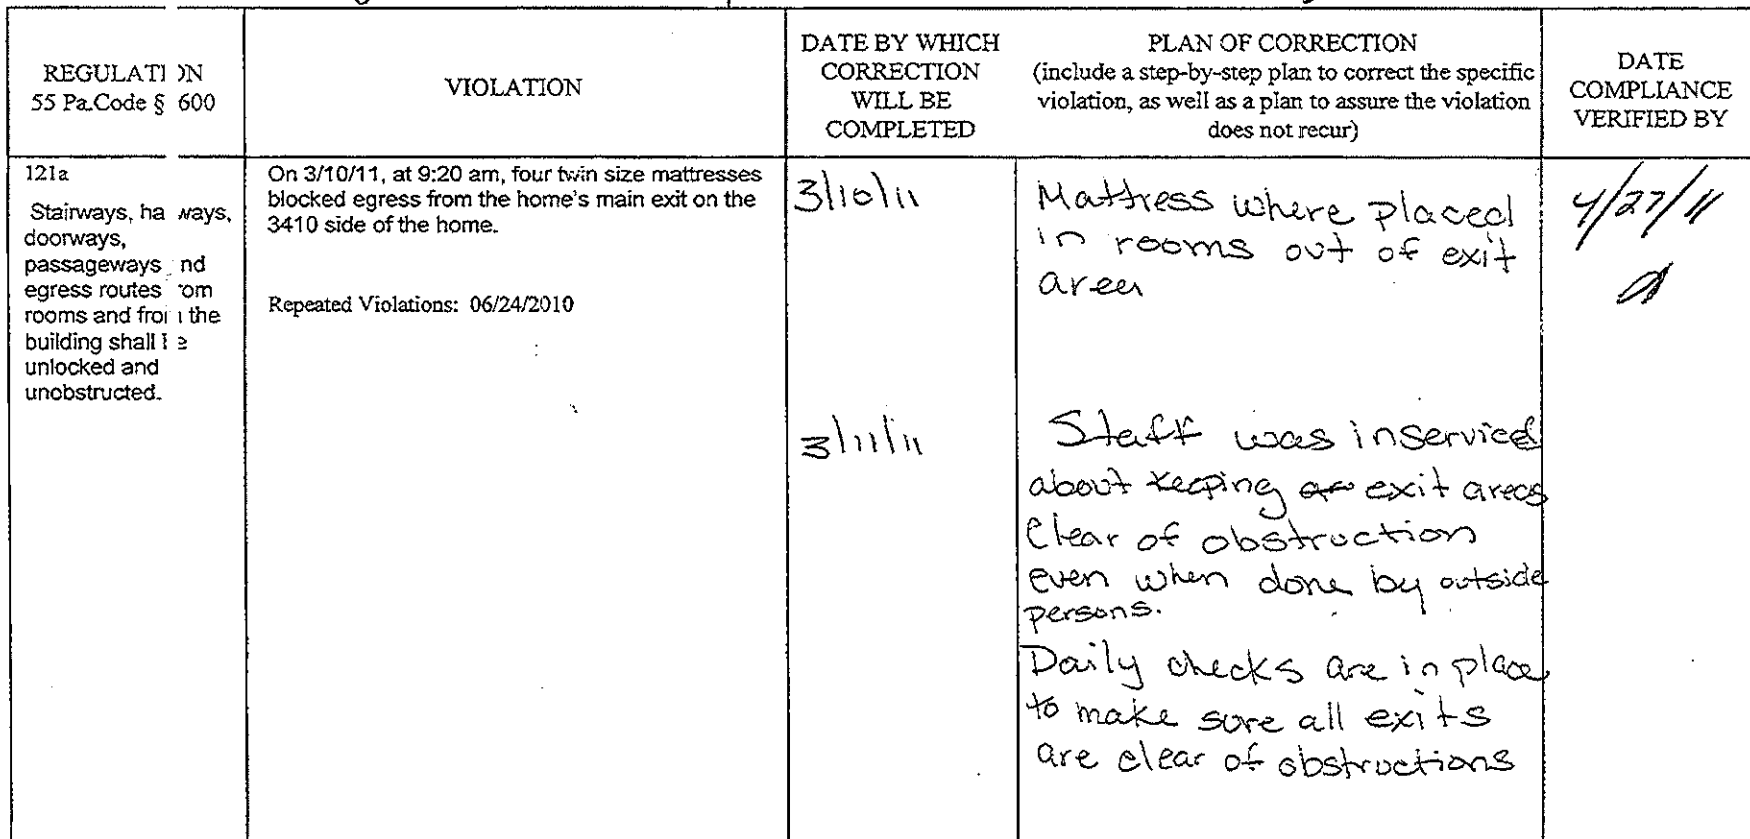 REGULATI )N
55 Pa.Code § 600
VIOLATION
DATE BY WHICH
CORRECTION
WILL BE
COMPLETED
PLAN OF CORRECTION
(include a step-by-step plan to correct the specific
violation, as well as a plan to assure the violation
does not recur)
DATE
COMPLIANCE
VERIFIED BY
121a
Stairways, ha ways,
doorways,
passageways nd
egress routes rom
rooms and fro the
building shall
unlocked and
unobstructed.
On 3/10/11, at 9:20 am, four twin size mattresses
blocked egress from the home's main exit on the
3410 side of the home.
Repeated Violations: 06/24/2010
3/10/11
Mattress where placed
in rooms out of exit
area
4/27/11
3/11/11
Staff was inserviced
about keeping exit areas
clear of obstruction
even when done by outside
persons.
Daily checks are in place
to make sure all exits
are clear of obstructions